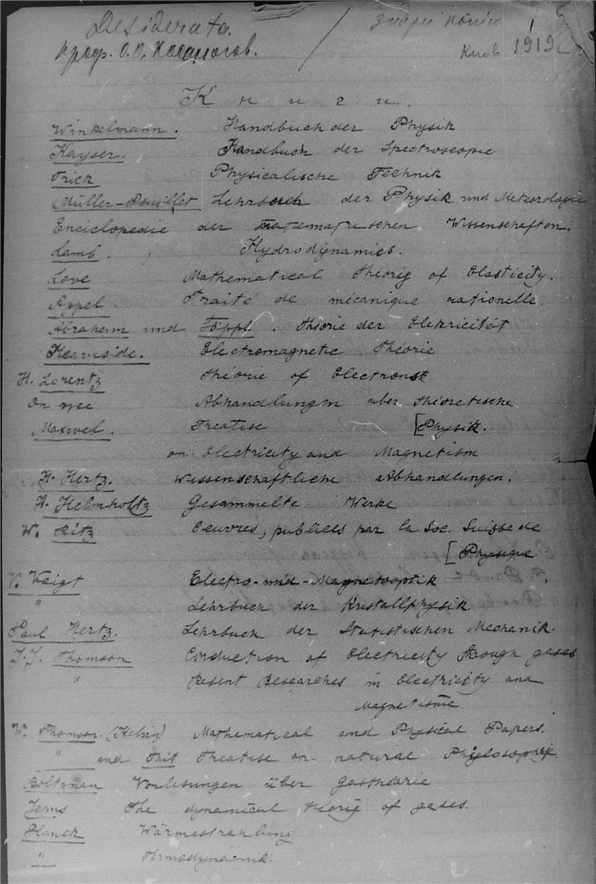 Desiderata.
проф. О.О. Косоногов.
Київ 1919
Книги.
Winkelmann. Handbuch der Physik
Kayser. Handbuch der Spectroscopie
Frick Physicalische Technik
Müller-Pouillet Lehrbuch der Physik und Meteorologie
Enciclopedie der matematischen Wissenschaften.
Lamb. Hydrodynamics.
Love Mathematical Theorie of Elasticity.
Appel Traité de mécanique rationelle.
Abraham und Föppl. Theorie der Elekricität
Heaviside. Electromagnetic Theorie
H. Lorentz Theorie of Electrons
Abhandlungen über theoretische
Maxwel. Treatise [Physik.
on Electricity and Magnetism
H. Hertz. Wissenschaftliche Abhandlungen.
H. Helmholtz Gesammelte Werke
W. Ritz Oeuvres, publiées par la Soc. Suisse de
[Physique
V. Voigt Electro-und-Magnetooptik.
" Lehrbuch der Kristallphysik
Paul Hertz. Lehrbuch der Statistischen Mechanik.
J.J. Thomson Conduction of Electricity through gases
" Resent Researches in Electricity and
Magnetisme
W. Thomson. (Kelvin) Mathematical and Physical Papers.
" and Tait Treatise on natural Philosophie
Boltzman Vorlesungen über Gastheorie
Jeans The dynamical teorie of gases.
Planck Wärmestrahlung
" Termodynamik